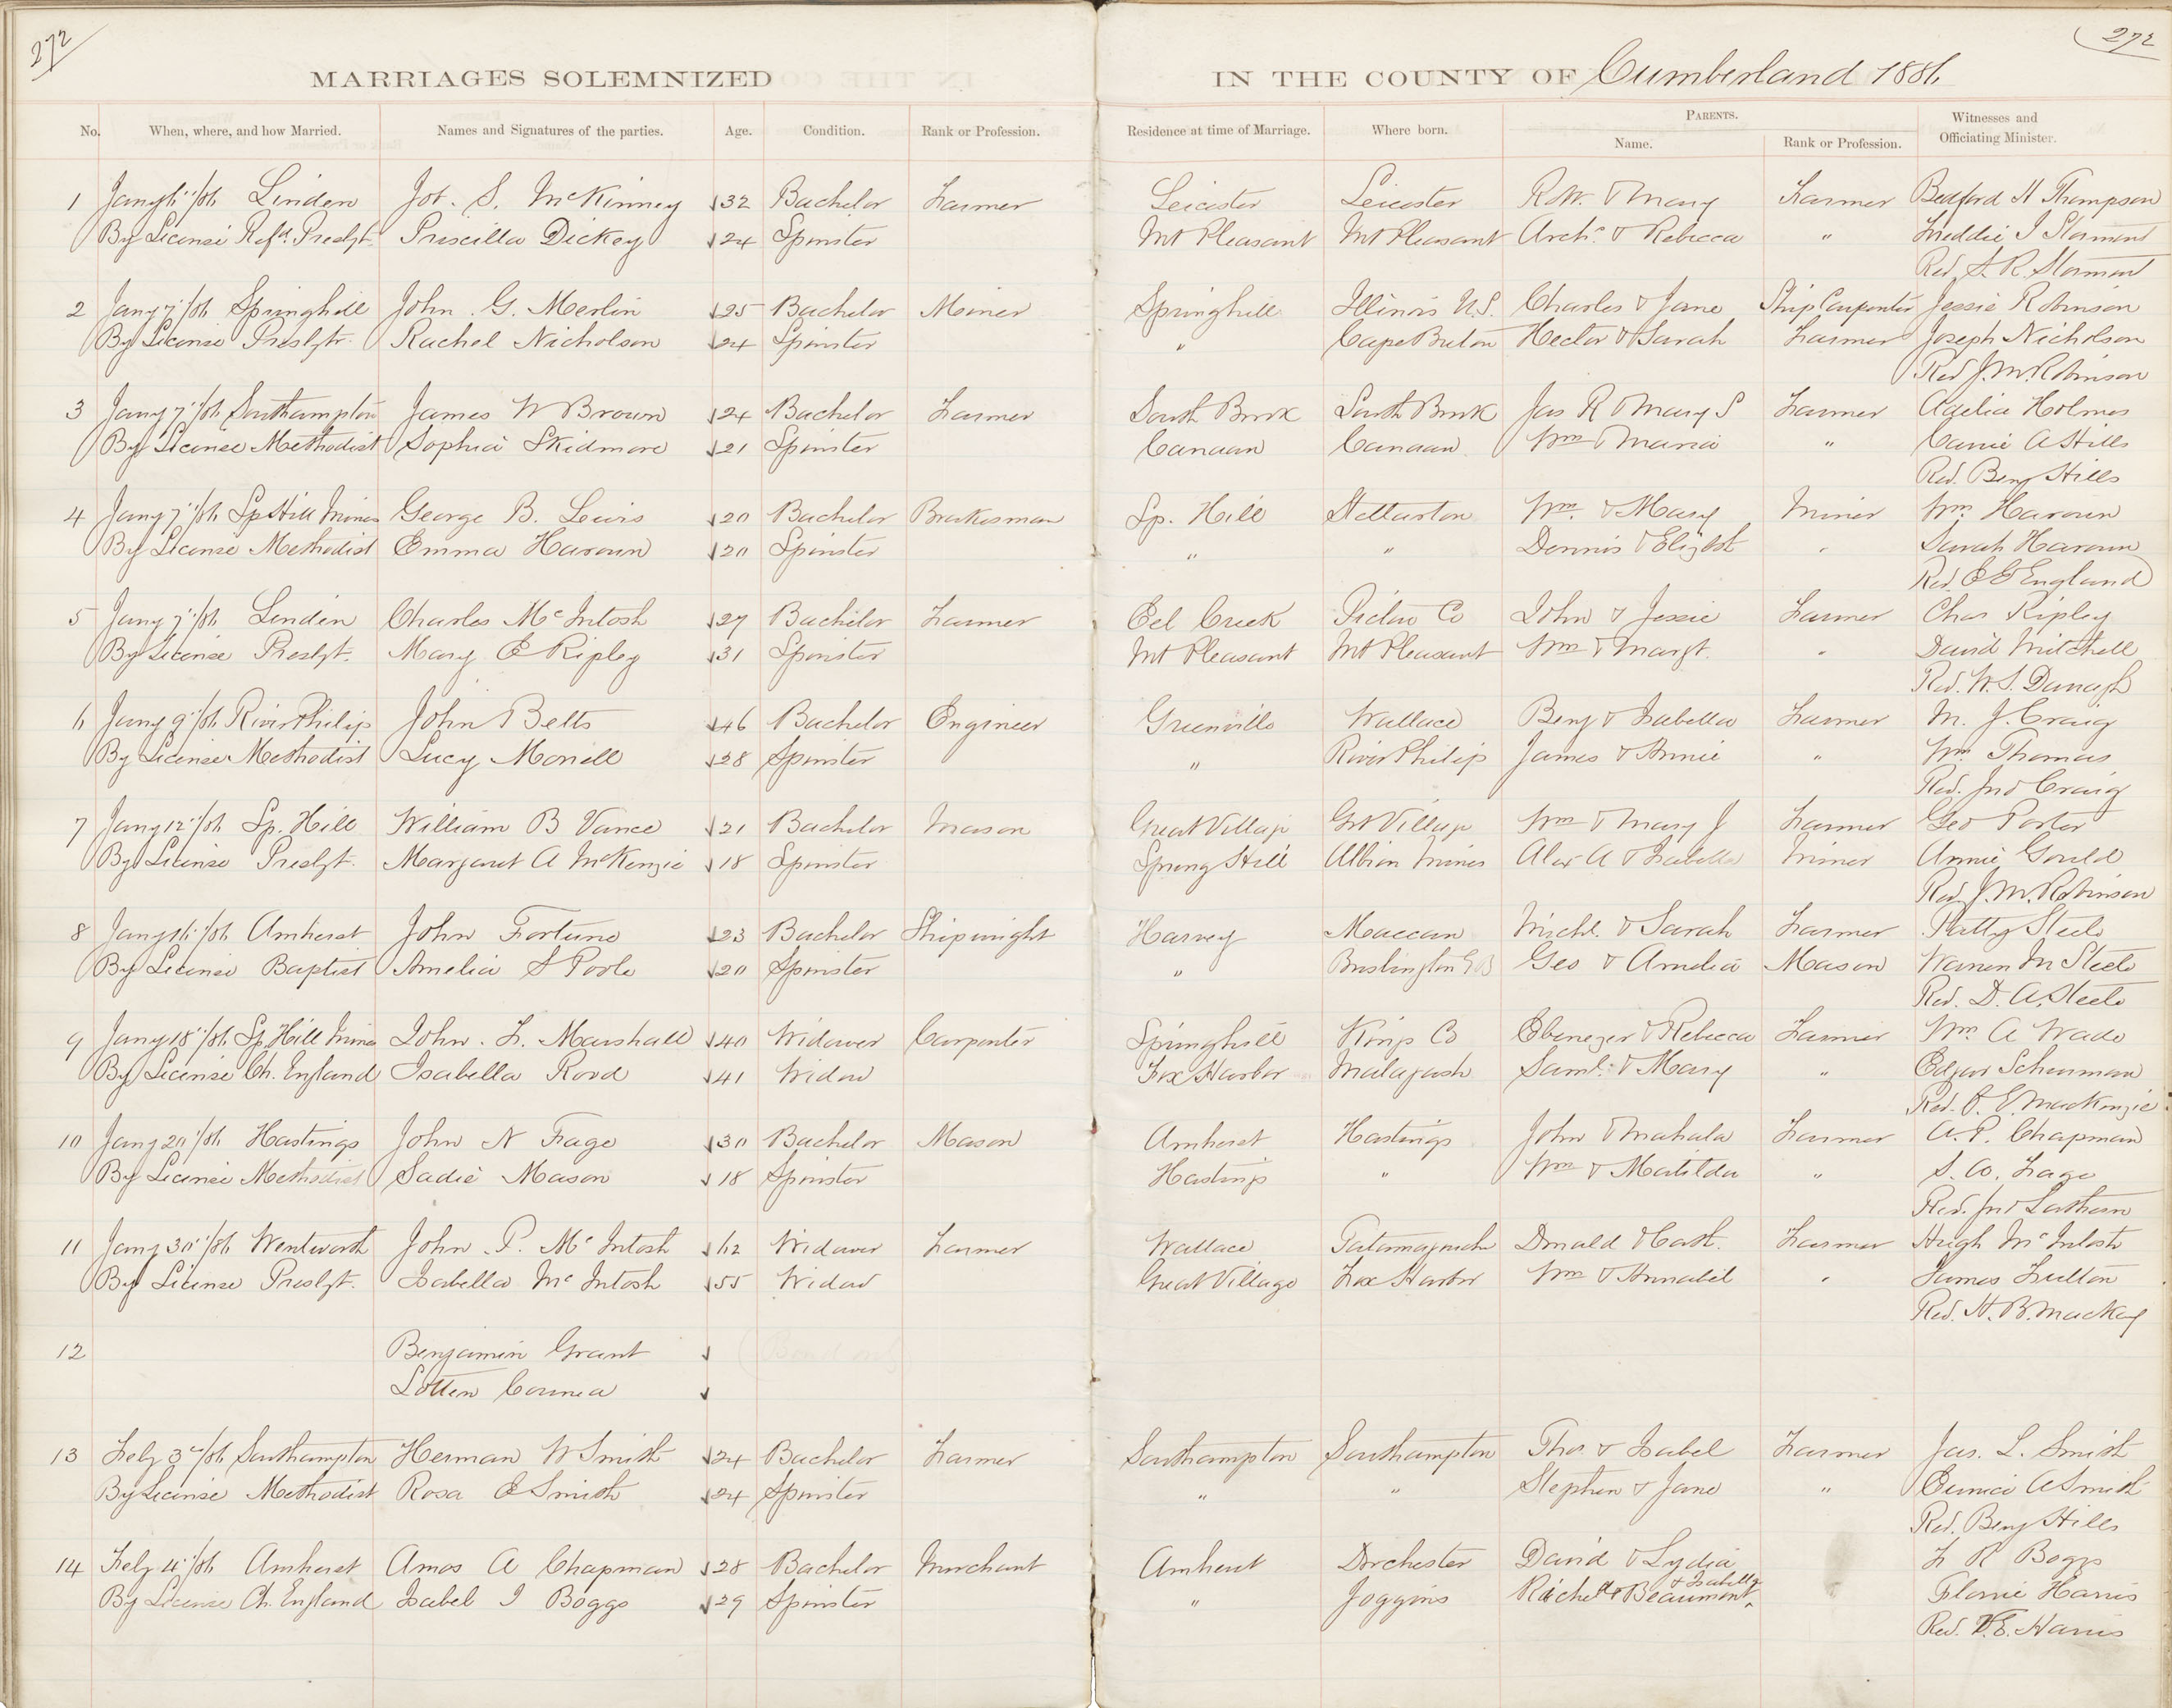 272
272
MARRIAGES SOLEMNIZED IN THE COUNTY OF Cumberland 1886
No. When, where, and how Married. Names and Signatures of the parties. Age. Condition. Rank or Profession. Residence at time of Marriage. Where born. PARENTS. Name. Rank or Profession. Witnesses and Officiating Minister.
1 Jany 6"/86 Linden Jot. S. McKinney 32 Bachelor Farmer Leicester Leicester R.W. & Mary Farmer Bedford H Thompson
By License Refd. Presbyt. Priscilla Dickey 24 Spinster Mt Pleasant Mt Pleasant Archd. & Rebecca " Freddie J Stormont
Rev. S. R. Stormont
2 Jany 7"/86 Springhill John G. Merlin 25 Bachelor Miner Springhill Illinois U.S. Charles & Jane Ship Carpenter Jessie Robinson
By License Presbytr. Rachel Nicholson 24 Spinster " Cape Breton Hector & Sarah Farmer Joseph Nicholson
Rev J. M. Robinson
3 Jany 7"/86 Southampton James W Brown 24 Bachelor Farmer South Brook South Brook Jas R & Mary S Farmer Adelia Holmes
By License Methodist Sophia Skidmore 21 Spinster Canaan Canaan Wm & Maria " Carrie A Hills
Rev. Benj Hills
4 Jany 7"/86 Sp Hill Mines George B. Lewis 20 Bachelor Brakesman Sp. Hill Stellarton Wm. & Mary Miner Wm. Haroun
By License Methodist Emma Haroun 20 Spinster " " Dennis & Elizbt " Sarah Haroun
Rev. E E England
5 Jany 7"/86 Linden Charles McIntosh 27 Bachelor Farmer Eel Creek Pictou Co John & Jessie Farmer Chas Ripley
By License Presbyt. Mary E Ripley 31 Spinster Mt Pleasant Mt Pleasant Wm & Margt. " David Mitchell
Rev. W. S. Darragh
6 Jany 9"/86 River Philip John Betts 46 Bachelor Engineer Greenville Wallace Benj & Isabella Farmer M. J. Craig
By License Methodist Lucy Morrell 28 Spinster " River Philip James & Annie " Wm. Thomas
Rev. Jno Craig
7 Jany 12"/86 Sp. Hill William B Vance 21 Bachelor Mason Great Village Grt Village Wm & Mary J Farmer Geo Porter
By License Presbyt. Margaret A McKenzie 18 Spinster Spring Hill Albion Mines Alex A & Isabella Miner Annie Gould
Rev. J. M. Robinson
8 Jany 16"/86 Amherst John Fortune 23 Bachelor Shipwright Harvey Maccan Michl. & Sarah Farmer Patty Steele
By License Baptist Amelia S Poole 20 Spinster " G B Geo & Amelia Mason Warren M Steele
Rev. D. A. Steele
9 Jany 18"/86 Sp. Hill Mines John F. Marshall 40 Widower Carpenter Springhill Kings Co Ebenezer & Rebecca Farmer Wm. A Wade
By License Ch. England Isabella Rood 41 Widow Fox Harbor Malagash Saml. & Mary " Edgar Schurman
Rev. J. E. MacKenzie
10 Jany 20"/86 Hastings John N Fage 30 Bachelor Mason Amherst Hastings John & Mahala Farmer A. P. Chapman
By License Methodist Sadie Mason 18 Spinster Hastings " Wm & Matilda " S. W. Fage
Rev. Jno Lathern
11 Jany 30"/86 Wentworth John P. McIntosh 62 Widower Farmer Wallace Tatamagouche Donald & Cath. Farmer Hugh McIntosh
By License Presbyt. Isabella McIntosh 55 Widow Great Village Fox Harbor Wm & Annabel " James Fulton
Rev. H. B. MacKay
12 Benjamin Grant (Bond only
Lotten Counea
13 Feby 3"/86 Southampton Herman W Smith 24 Bachelor Farmer Southampton Southampton Thos & Isabel Farmer Jas. L. Smith
By License Methodist Rosa E Smith 24 Spinster " " Stephen & Jane " Eunice A Smith
Rev. Benj Hills
14 Feby 4"/86 Amherst Amos A Chapman 28 Bachelor Merchant Amherst Dorchester David & Lydia F R Boggs
By License Ch. England Isabel J Boggs 29 Spinster " Joggins Richd & Beaumont & Isabella Florrie Harris
Rev. V. E. Harris